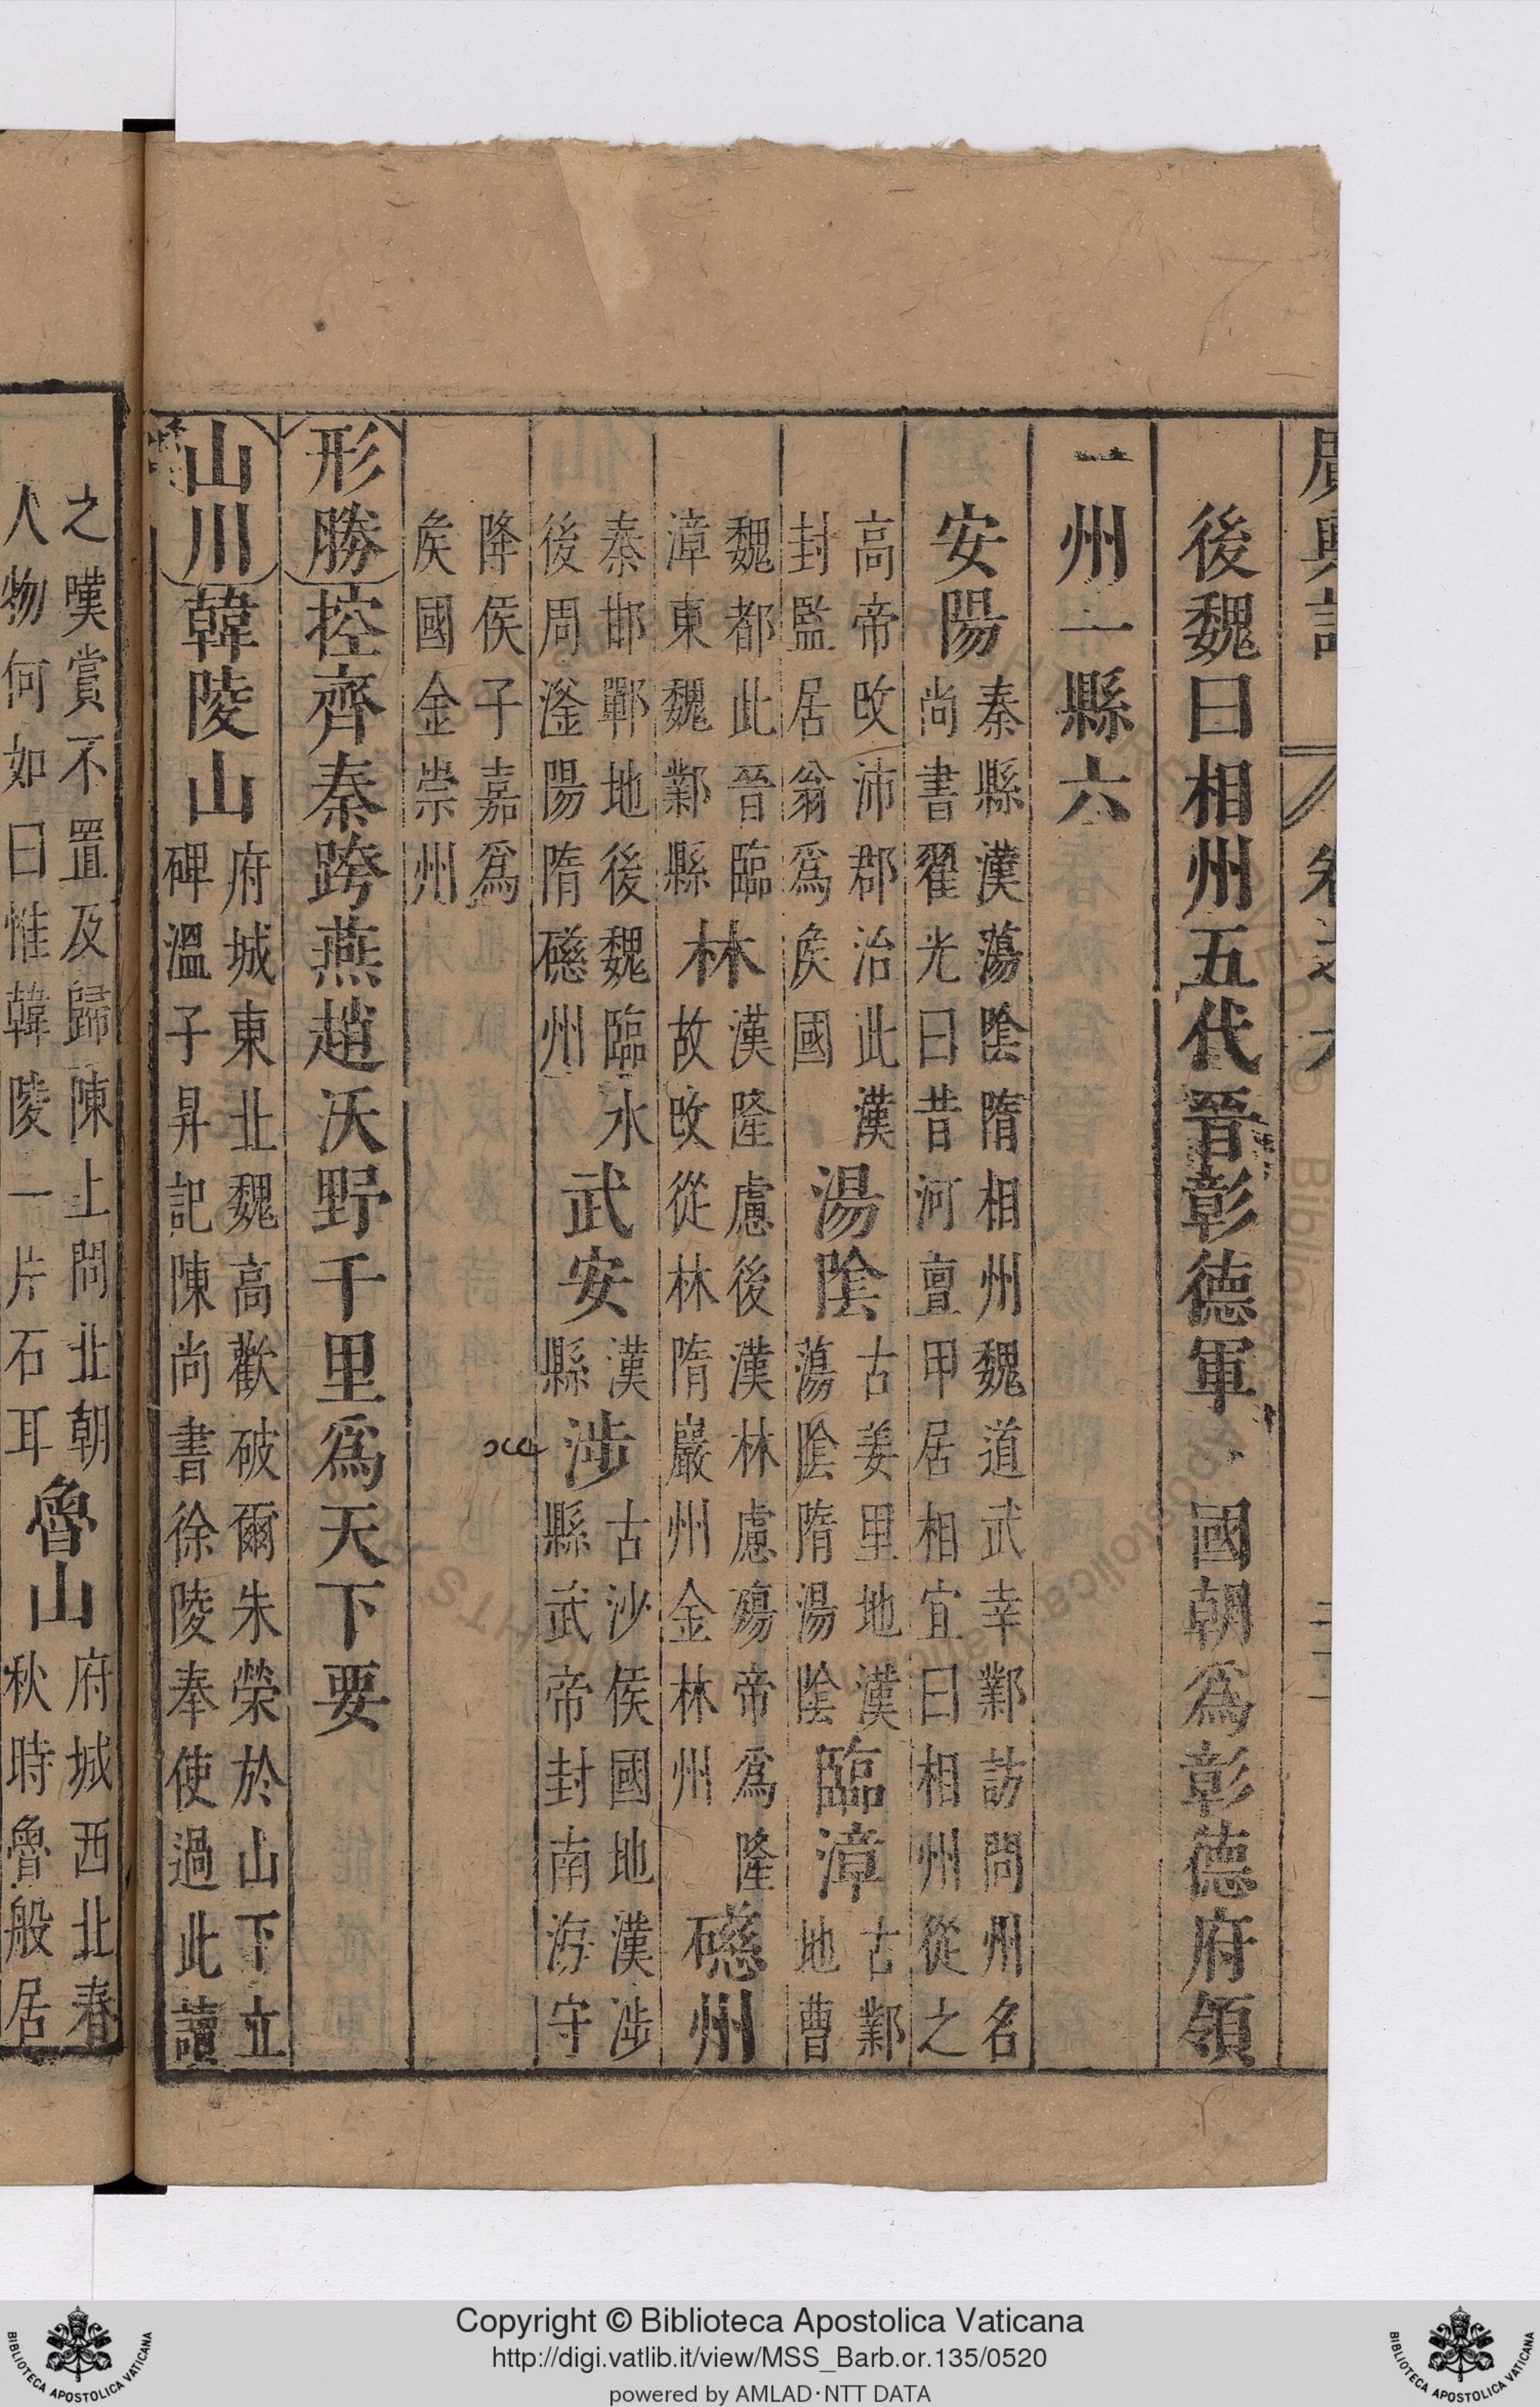 廣輿記 卷之六
後魏曰相州五代晉彰德軍 國朝爲彰德府領
一州一縣六
安陽
秦縣漢蕩陰隋相州魏道武幸鄴訪問州名
尚書翟光曰昔河亶甲居相宜曰相州從之
高帝攺沛郡治此漢
封監居翁爲矦國
湯陰
古姜里地漢
蕩陰隋湯陰
臨漳
古鄴
地曹
魏都此晉臨
漳東魏鄴縣
林
漢隆慮後漢林慮殤帝爲隆
故攺從林隋巖州金林州
礠州
秦邯鄲地後魏臨水
後周滏陽隋礠州
武安
漢
縣
涉
古沙侯國地漢涉
縣武帝封南海守
降侯子嘉爲
矦國金崇州
形勝控齊秦跨燕趙沃野千里爲天下要
山川韓陵山
府城東北魏高歡破爾朱榮於山下立
碑溫子昇記陳尚書徐陵奉使過此讀
之嘆賞不置及歸陳上問北朝
人物何如曰惟韓陵一片石耳
魯山
府城西北春
秋時魯般居
Copyright © Biblioteca Apostolica Vaticana
http://digi.vatlib.it/view/MSS_Barb.or.135/0520
powered by AMLAD·NTT DATA
BIBLIOTECA APOSTOLICA VATICANA
BIBLIOTECA APOSTOLICA VATICANA